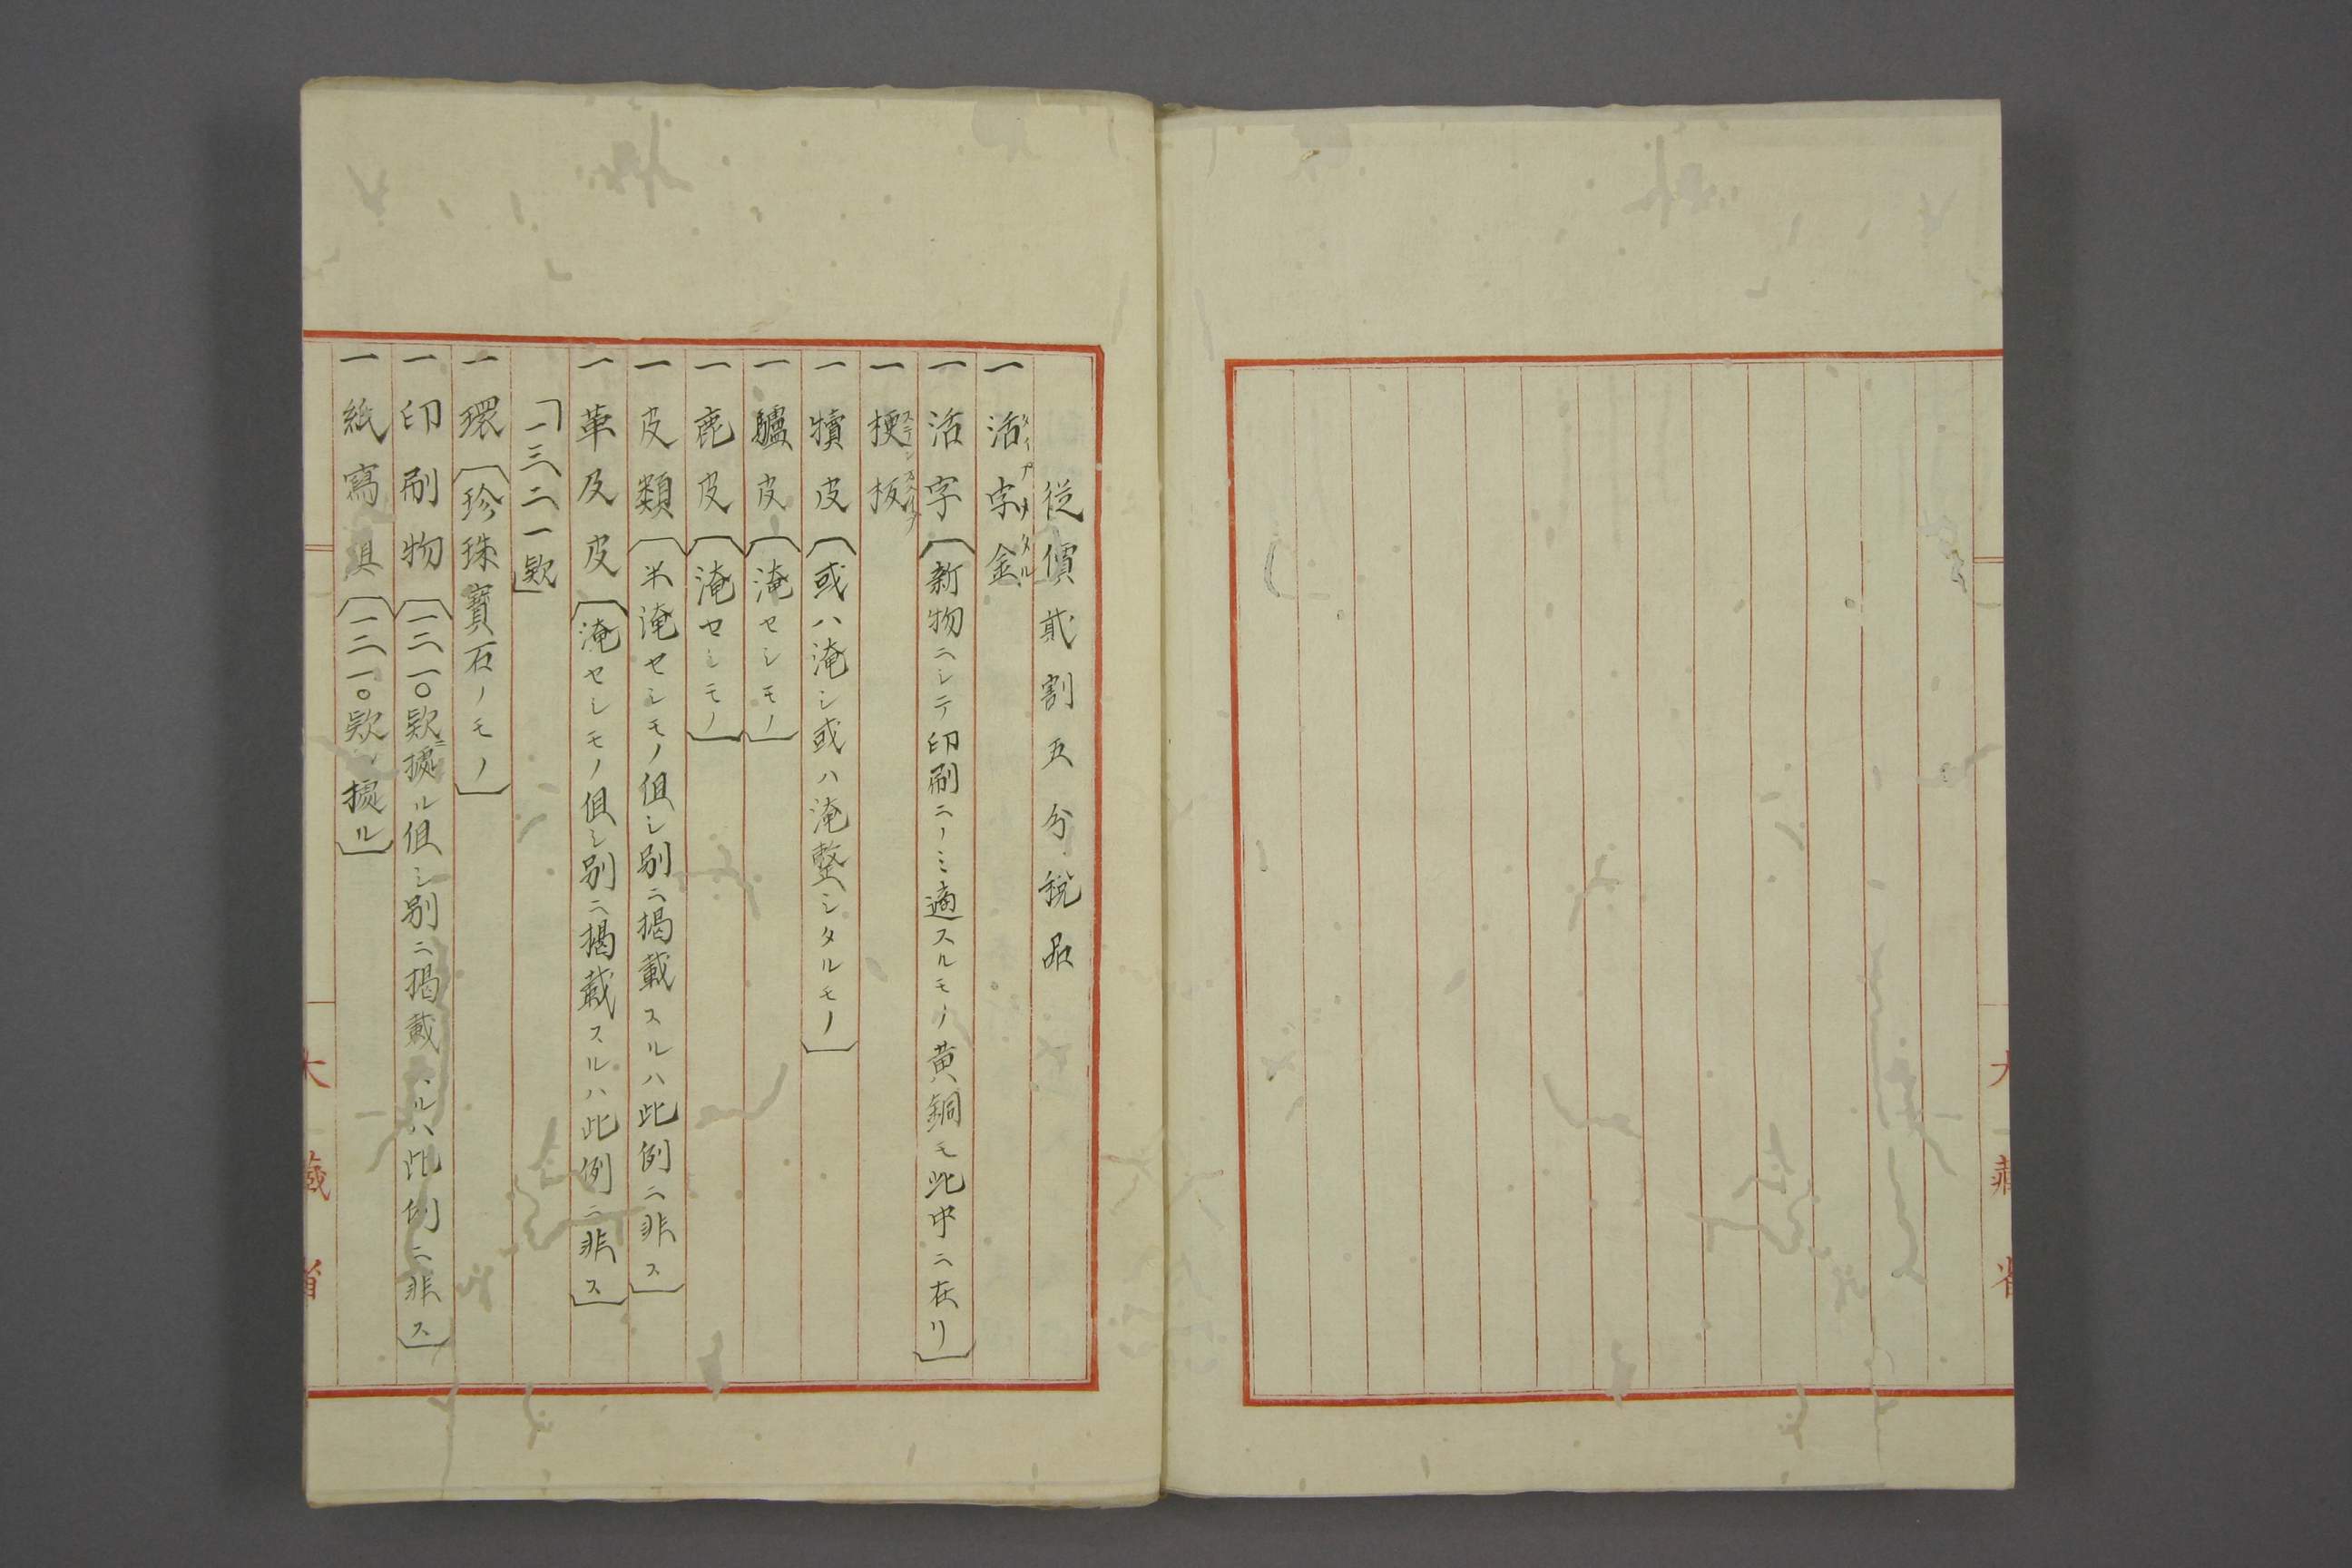 従價貳割五分税品
一活字金 タイプメタル
一活字〔新物ニシテ印刷ニノミ適スルモノ黄銅モ此中ニ在リ〕
一梗板
一犢皮〔或ハ淹シ或ハ淹整シタルモノ〕
一驢皮〔淹セシモノ〕
一鹿皮〔淹セシモノ〕
一皮類〔半淹セシモノ但シ別ニ掲載スルハ此例ニ非ス〕
一革及皮〔淹セシモノ但シ別ニ掲載スルハ此例ニ非ス〕
「一三二一欵」
一環〔珍珠寳石ノモノ〕
一印刷物〔一二一〇欵ニ據ル但シ別ニ掲載ルハ此例ニ非ス〕
一紙寫具〔一二一〇欵據ル〕
大藏省
大藏省